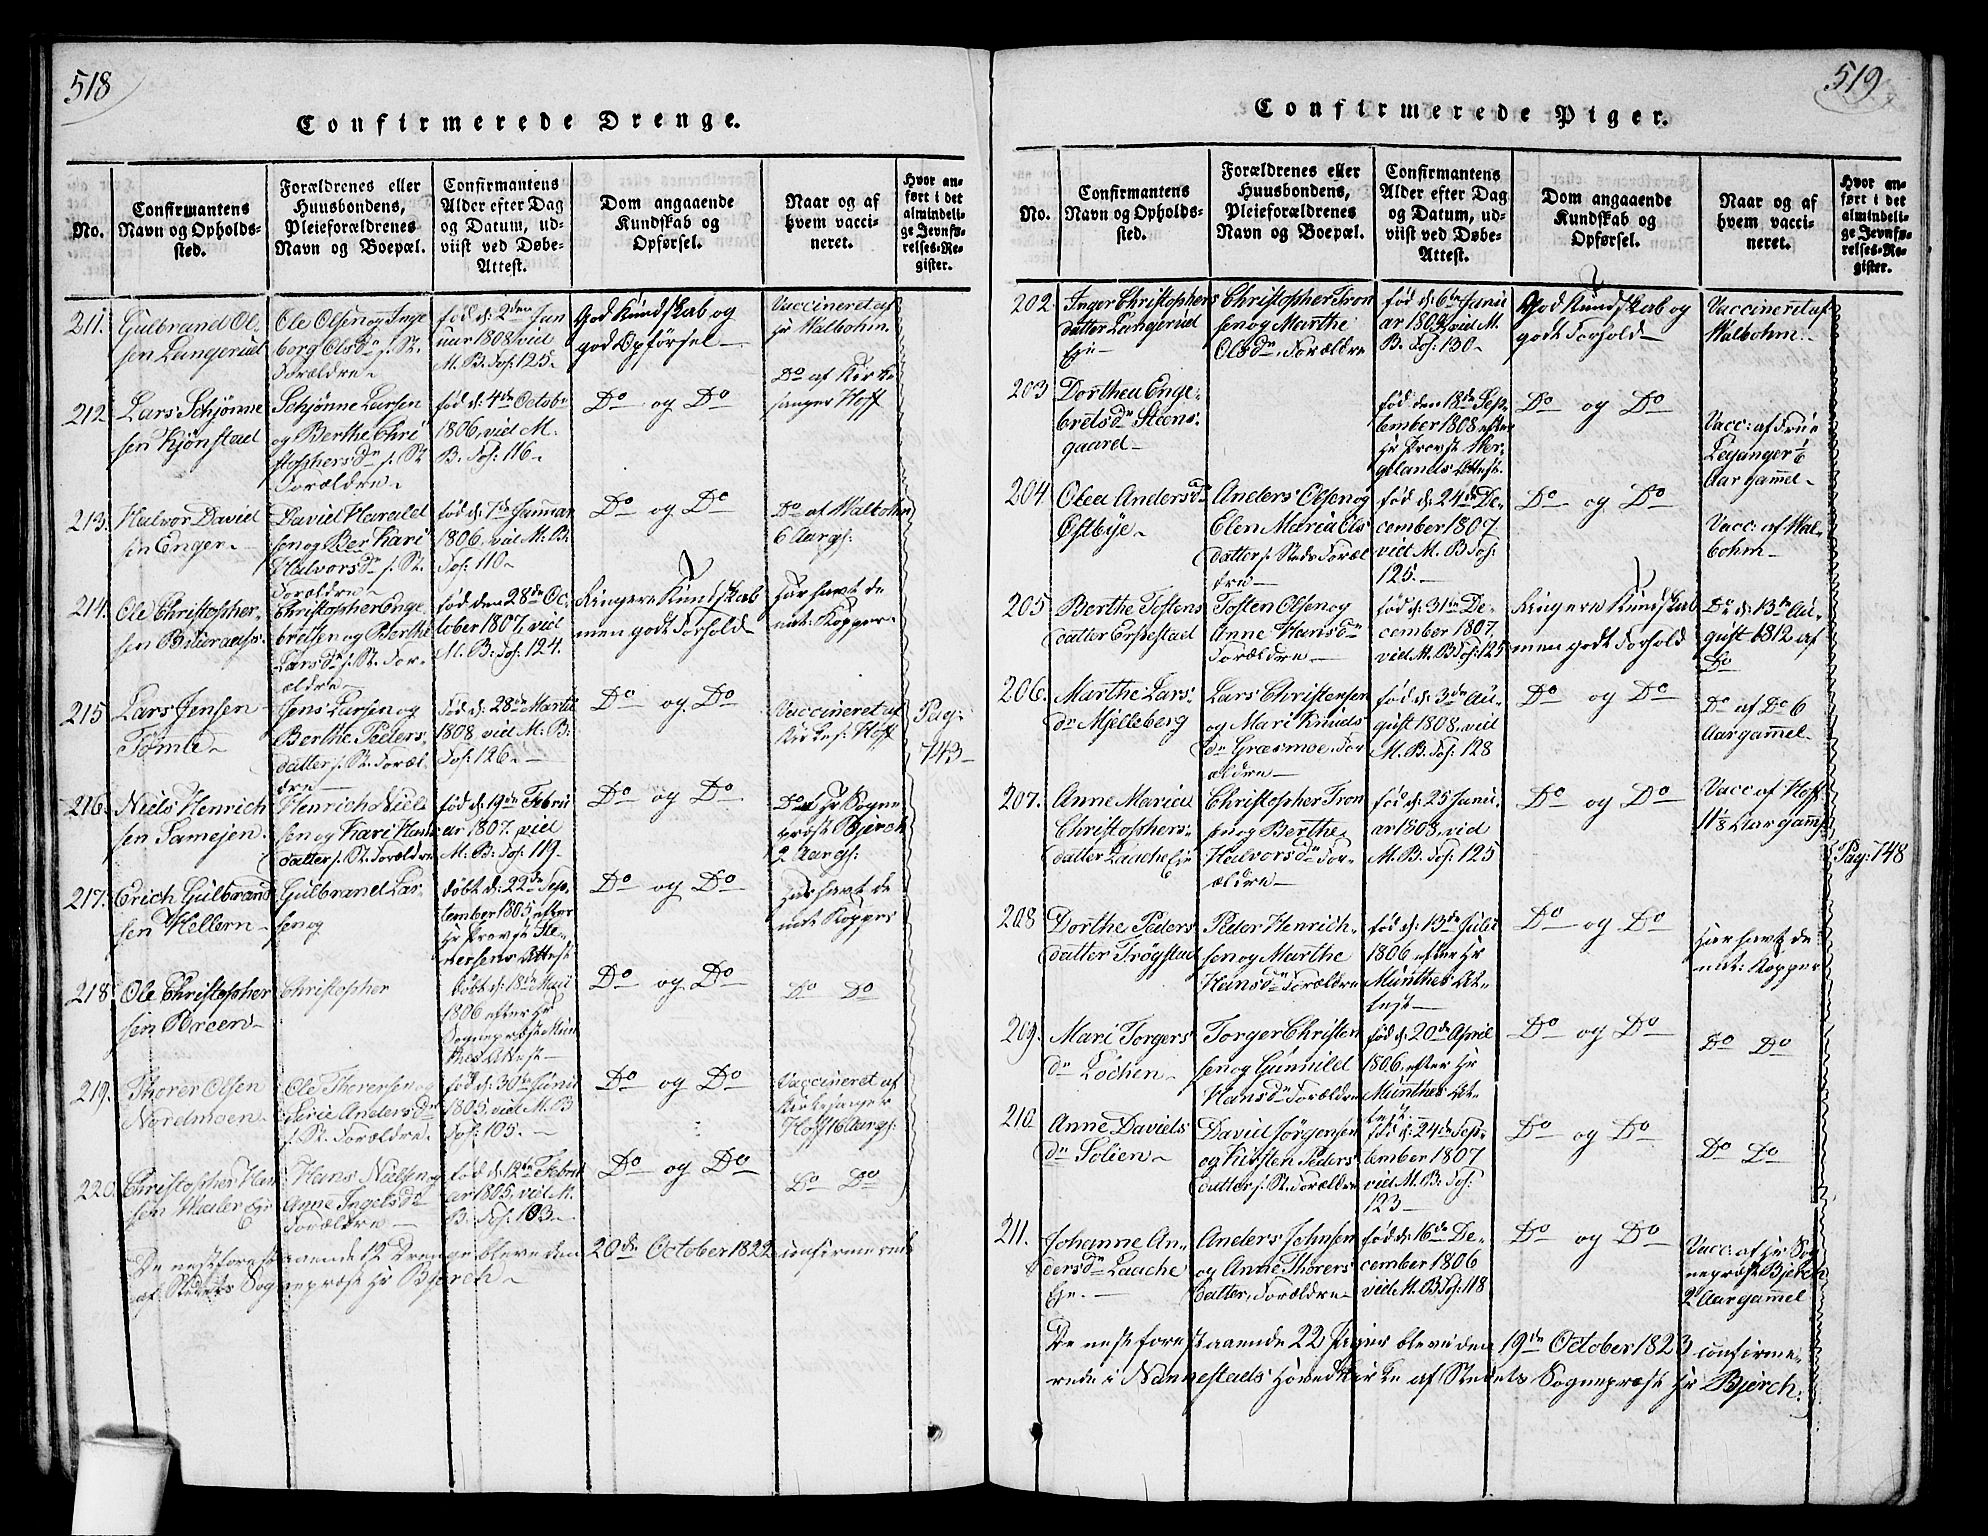 518
Confirmerede Drenge.
No.
Confirmantens
Navn og Opholds-
sted.
Forældrenes eller
Huusbondens,
Pleieforældrenes
Navn og Boepæl.
Confirmantens
Alder efter Dag
og Datum, ud-
viist ved Døbe-
Attest.
Dom angaaende
Kundskab og
Opførsel.
Naar og af
hvem vacci-
neret.
Hvor an-
ført i det
almindeli-
ge Jevnfø-
relses-Re-
gister.
211.
Gulbrand Ol-
sen Langerud
Ole Olsen og Inge
borg Olsdr s. St.
Forældre
fød d: 2den Jan
uar 1808 vid
M. B. Fol: 125.
God Kundskab og
god Opførsel
Vaccineret af
Hr Walbohm.
212
Lars Schjønne
sen Kjønstad
Schjønne Larsen
og Berthe Chri
stophersdr s. St
Forældre
fød d: 4de Octobr
1806, vid M.
B. Fol: 116
Do og Do
Do af Kirke
sanger Hoff
213.
Halvor David
sen Enger
David Harald
sen og Kari
Halvorsdr s. St.
Forældre
fød d: 7de Januar
1806. vid M. B.
Fol: 110
Do og Do
Do af Walbohm
6 Aar gl:
214.
Ole Christopher-
sen
Christopher Enge
bretsen og Berthe
Larsdr s. St. For-
ældre
fød den 28de Oc-
tober 1807, vid
M. B. Fol: 124.
Ringere Kundskab
men godt Forhold
Har havt de
nat: Kopper
215
Lars Jensen
Tømte
Jens Larsen og
Berthe Peders-
datter s. St. Foræl-
dre
Fød d: 28de Martii
1808 vid M. B.
Fol: 126
Do og Do
Vaccineret af
Kirkes: Hoff
Pag:
743
216
Niels Henrich
sen
Henrich Niel
sen og Kari Hans
datter s. St. Forældre
fød d: 19de Febru
ar 1807. vid
M. B. Fol: 119
Do og Do
Do af Hr Sogne
præst Bjerch
2 Aar gl:
217.
Erich Gulbrand
sen Hellern
Gulbrand Lar-
sen og
døbt d: 22de Sep-
tember 1805, efter
Hr Provst
Attest
Do og Do
Har havt de
nat: Kopper
218
Ole Christopher
sen Breen
Christopher
døbt d: 18de Maii
1806 efter Hr
Sognepræst Mun
thes Attest
Do og Do
Do Do
219.
Thorer Olsen
Nordmoen
Ole Thorersen og
Anders dr
s. St. Forældre
fød d: 30te Junii
1805, vid M. B
Fol: 105.
Do og Do
Vaccineret af
Kirkesanger
Hoff 16 Aar gl:
220.
Christopher Han
sen
Hans Nielsen og
Anne Ingels dr
Forældre
fød d: 12te Febru
ar 1805, vid M.
B. Fol: 103
Do og Do
Do Do
De næstforestaaende 12 Drenge bleve den 20de October 1822 confirmerede
af Stedets Sognepræst Hr Bjerch
519
Confirmerede Piger.
No.
Confirmantens
Navn og Opholds-
sted.
Forældrenes eller
Huusbondens,
Pleieforældrenes
Navn og Boepæl.
Confirmantens
Alder efter Dag
og Datum, ud-
viist ved Døbe-
Attest.
Dom angaaende
Kundskab og
Opførsel.
Naar og af
hvem vacci-
neret.
Hvor an-
ført i det
almindeli-
ge Jevnfø-
relses-Re-
gister.
202.
Inger Christophers
datter Langerud
Eje
Christopher Tron
sen og Marthe
Olsdr. Forældre
fød d: 6te Janu
ar 1809, vid M.
B. Fol: 130
God Kundskab og
godt Forhold
Vaccineret af
Walbohm.
203
Dorthea Enge-
bretsdr Steens-
gaard
fød den 18de Sep-
tember 1808 efter
Hr Provst Wer-
gelands Attest.
Do og Do
Vacc: af Frue
Leganger 1/6
Aar gammel
204
Olea Andersdr
Østbye
Anders Olsen og
Elen Maria Ols
datter s. Steds Foræl
dre
fød d: 24de De-
cember 1807
vid M. B Fol:
125.
Do og Do
Vacc: af Wal-
bohm
205
Berthe Tostens
datter Erpestad
Tosten Olsen og
Anne Hansdr
Forældre
fød d: 31te De-
cember 1807,
vid M. B Fol: 125
Ringere Kundskab
men godt Forhold
Do d: 13de Au-
gust 1812 af
Do
206.
Marthe Lars-
dr Mjelleberg
Lars Christensen
og Mari Knuds
dr Græsmoe, For
ældre
fød d: 3de Au-
gust 1808, vid
M. B. Fol: 128
Do og Do
Do af Do 6
Aar gammel
207.
Anne Maria
Christophers-
datter Laache Eje
Christopher Tron
sen og Berthe
Halvorsdr For-
ældre
fød d: 25 Janu-
ar 1808, vid
M. B. Fol: 125
Do og Do
Vacc af Hoff
11 1/8 Aar gaml
Pag: 748
208
Dorthe Peders
datter Trøgstad
Peder Henrich-
sen og Marthe
Hansdr Forældre
fød d: 13de Julii
1806 efter Hr
Munthes At-
test
Do og Do
Har havt de
nat: Kopper
209.
Mari Torgers
dr Lochen
Torger Christen
sen og Gunnild
Hansdr Forældre
fød d: 20de April
1806, efter Hr
Munthes At-
test.
Do og Do
Do Do
210
Anne Davids
dr Solien
David Jörgensen
og Kirsten Peders
datter s. St. Forældre
fød d: 24de Sep-
tember 1807
vid M. B. Fol:
123
Do og Do
Do Do
211.
Johanne An-
dersdr Laache
Eje.
Anders Johnsen
og Anne Thorers
datter, Forældre
fød d: 16de De-
cember 1806
vid M. B Fol: 118
Do og Do
Vacc: af Hr Sog
nepræst Bjerch
2 Aar gammel
De næstforestaaende 22 Piger bleve den 19de October 1823 confirme-
rede i Nannestads Hovedkirke af Stedets Sognepræst Hr Bjerch: